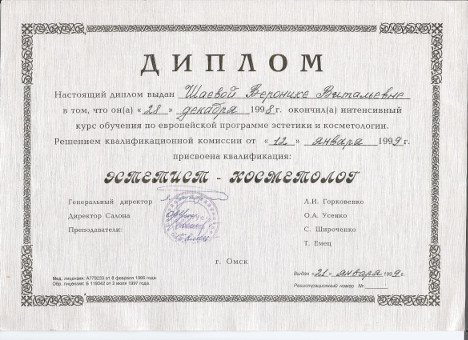 ДИПЛОМ
Настоящий диплом выдан Шаевой Веронике Витальевне
в том, что он(а) « 28 » декабря 1998г. окончил(а) интенсивный
курс обучения по европейской программе эстетики и косметологии.
Решением квалификационной комиссии от « 12 » января 1999г.
присвоена квалификация:
ЭСТЕТИСТ - КОСМЕТОЛОГ
Генеральный директор Л.И. Горковенко
Директор Салона О.А. Усенко
Преподаватели: С. Широченко
Т. Емец
г. Омск
Выдан «21» января 1999г.
Мед. лицензия: А779233 от 8 февраля 1999 года.
Обр. лицензия: Б 119342 от 2 июля 1997 года.
Регистрационный номер №